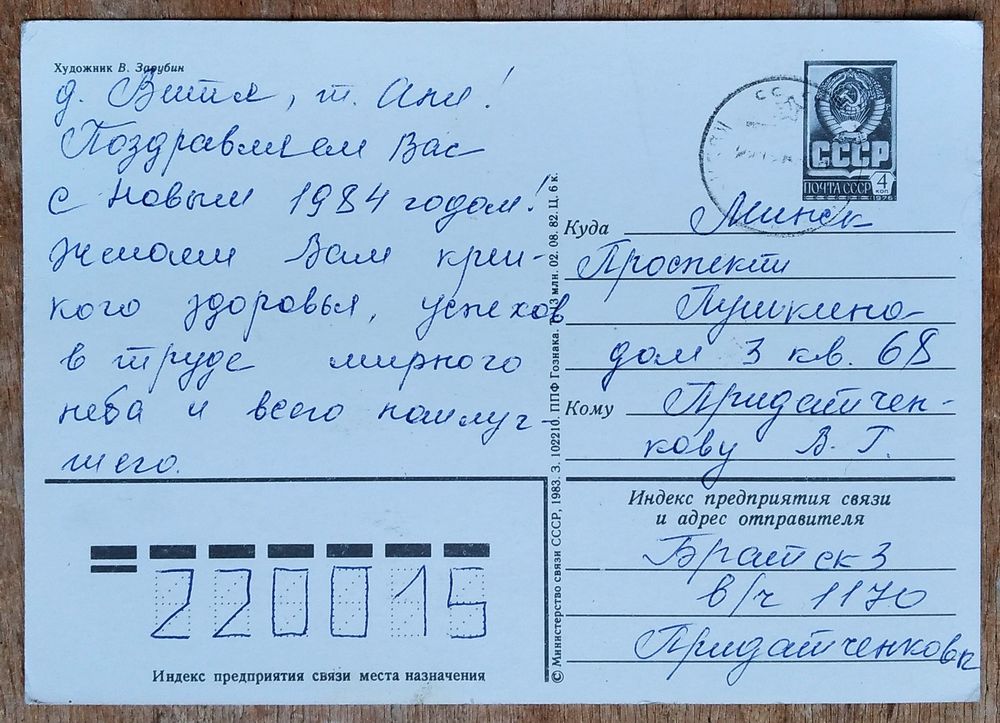 Художник В. Зарубин
д. Витя, т. Аня!
Поздравляем Вас
с Новым 1984 годом!
Желаем Вам креп-
кого здоровья, успехов
в труде мирного
неба и всего наилуч-
шего.
220015
Индекс предприятия связи места назначения
© Министерство связи СССР, 1983. З. 102210. ППФ Гознака. 13 млн. 02. 08. 82. Ц. 6 к.
СССР
ПОЧТА СССР 4 коп
1976
Куда Минск
Проспект
Пушкина
дом 3 кв. 68
Кому Придатчен-
кову В. Г.
Индекс предприятия связи
и адрес отправителя
Братск 3
в/ч 1170
Придатченков